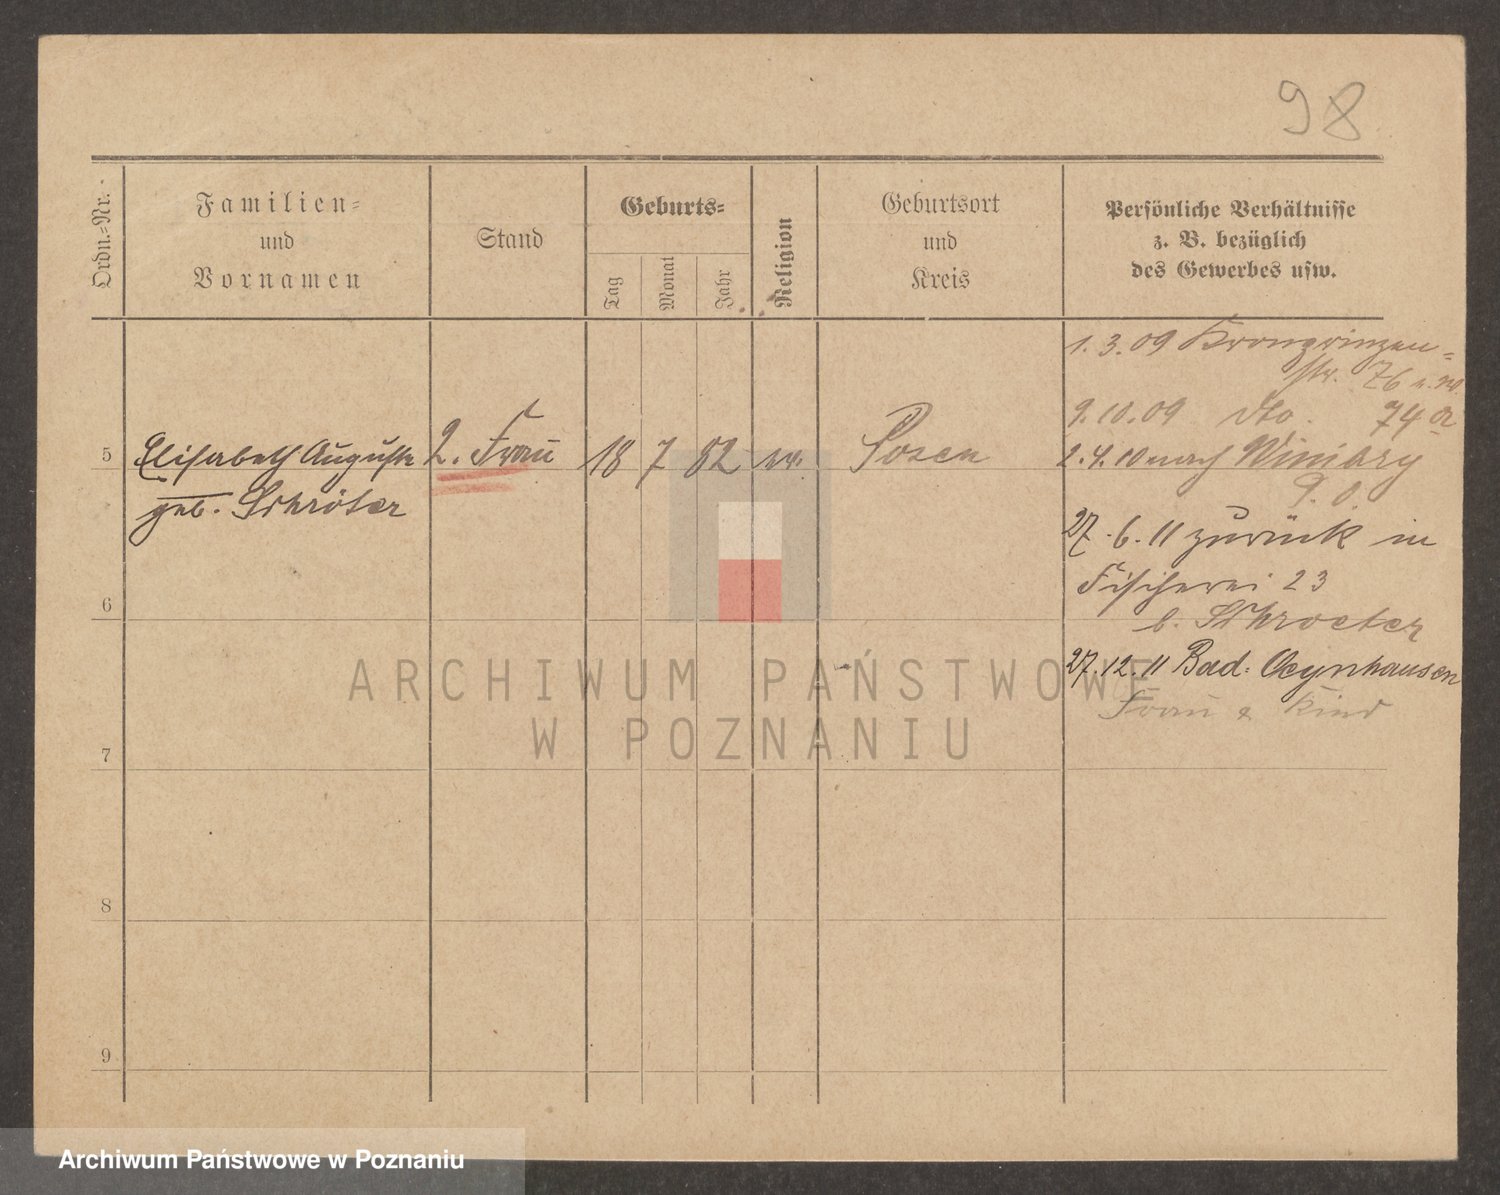 98
Ordn.=Nr.
Familien=
und
Vornamen
Stand
Geburts=
Tag
Monat
Jahr
Religion
Geburtsort
und
Kreis
Persönliche Verhältnisse
z. B. bezüglich
des Gewerbes usw.
1.3.09 Kronprinzen-
str. 76
9.10.09 dto. 74a
5 Elisabeth Auguste 2. Frau 18 7 82 ev. Posen
geb. Schröter
2.4.10 nach Winiary
27.6.11 zurück in
Fischerei 23
6
b. Schroeter
27.12.11 Bad: Oeynhausen
Frau & Kind
7
8
9
ARCHIWUM PAŃSTWOWE
W POZNANIU
Archiwum Państwowe w Poznaniu